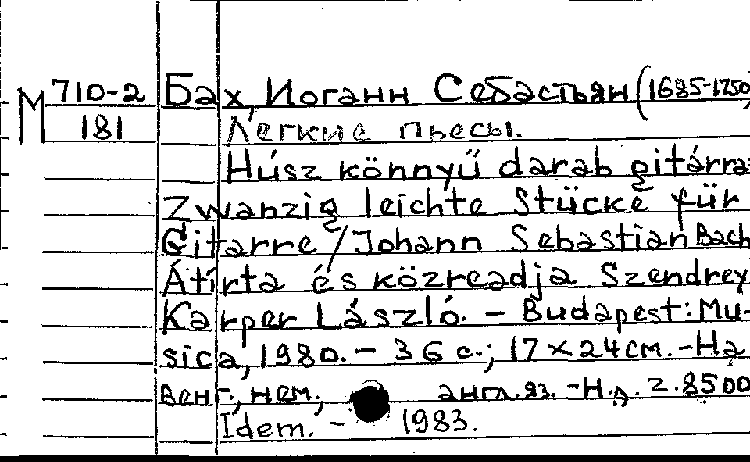 М 710-2 Бах, Иоганн Себастьян (1685-1750)
181 Легкие пьесы.
Húsz könnyű darab gitárra
Zwanzig leichte Stücke für
Gitarre / Johann Sebastian Bach
Átírta és közreadja Szendrey
Karper László. - Budapest: Mu-
sica, 1980. - 36 с.; 17 x 24 см. - На
венг., нем., англ. яз. - Н.д. Z. 8500
Idem. - 1983.